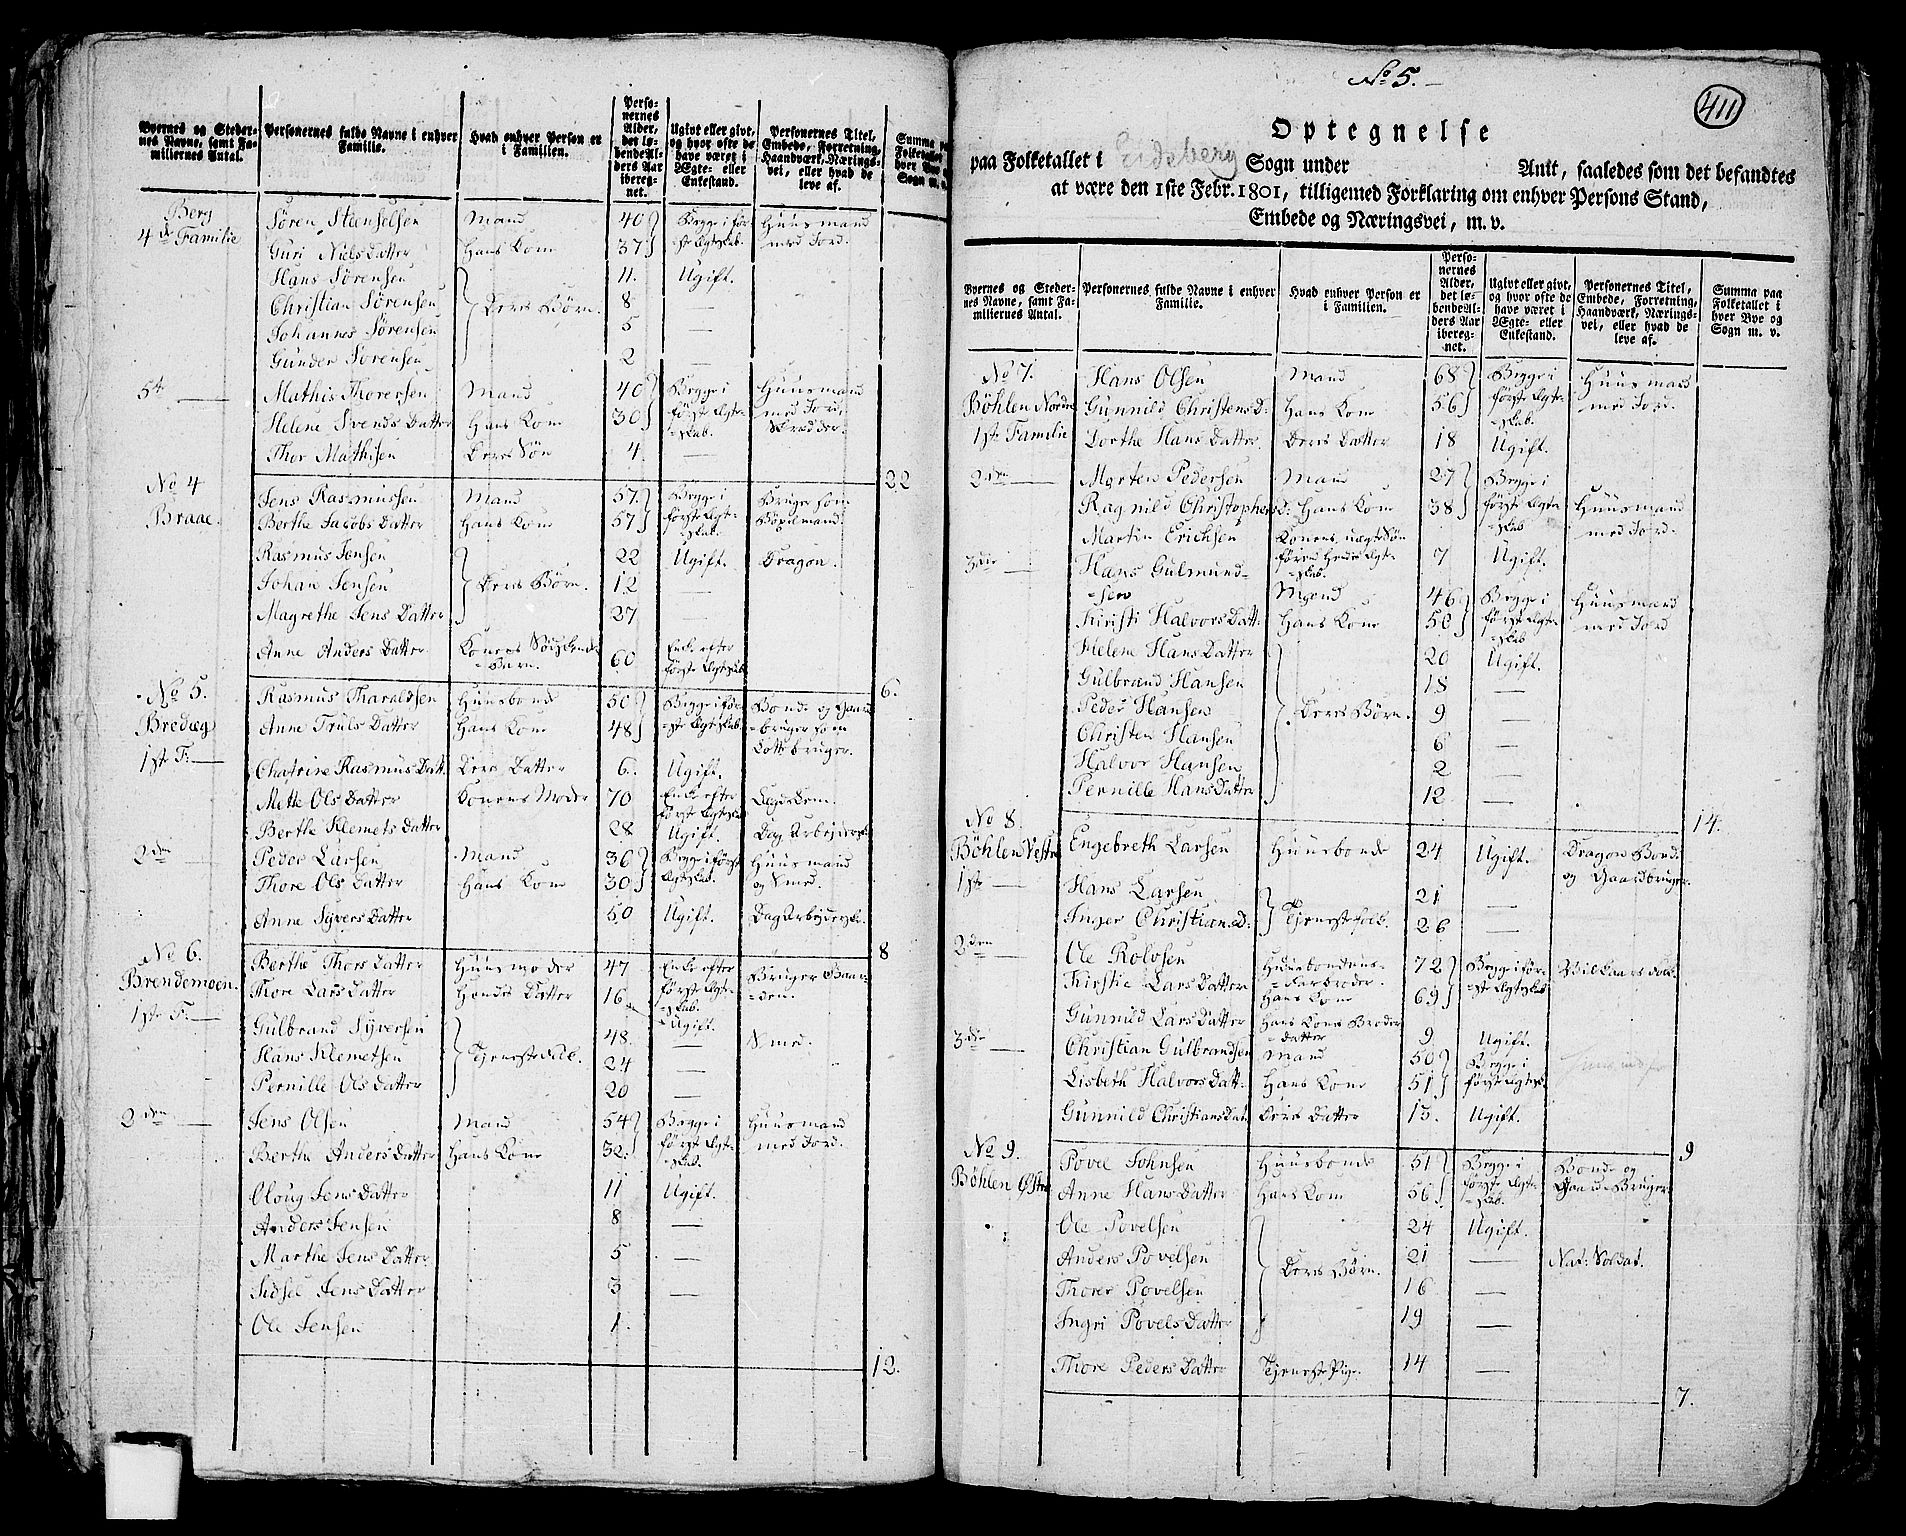 Byernes og Steder-
nes Navne, samt Fa-
miliernes Antal.
Personernes fulde Navne i enhver
Familie.
Hvad enhver Person er
i Familien.
Perso-
nernes
Alder,
det lø-
bende Al-
ders Aar
iberegnet.
Ugivt eller givt,
og hvor ofte de
have været i
Ægte- eller
Enkestand.
Personernes Titel,
Embede, Forretning,
Haandværk, Nærings-
vei, eller hvad de
leve af.
Summa paa
Folketallet i
hver Bye og
Sogn m. v.
Berg
4de Familie
Søren Steenselsen Mand 40 Begge i før- Huusmand
Guri Niels Datter Hans Kone 37 ste Egteskab. med Jord.
Hans Sørensen 11. Ugift.
Christian Sørensen Deres Børn. 8 —
Johannes Sørensen 5 —
Gunder Sørensen 2 —
5te — Mathis Thoresen Mand 40 Begge i Huusmand
Helene Svends Datter Hans Kone 30 første Egte-skab. med Jord, Skredder.
Thor Mathisen Deres Søn 4. —
22
No 4
Braae.
Jens Rasmussen Mand 57. Begge i Bruger som
Berthe Jacobs Datter Hans Kone 57 første Egte-skab. Bøxelmand.
Rasmus Jensen 22 Ugift. Dragon.
Johan Jensen Deres Børn. 12 —
Magrethe Jens Datter 27 —
Anne Anders Datter Konens Søskende-Barn. 60 Enke efter første Egteskab.
6.
No 5.
Bredeg
1ste F: —
Rasmus Tharaldsen Huusbonde 50 Begge i før- Bonde og Gaard
Anne Truls Datter Hans Kone 48 ste Egteskab. -bruger som
Lottsbruger.
Chatrine Rasmus Datt. Deres Datter 6. Ugift.
Mette Ols Datter Konens Moder 70 Enke efter første Egteskab Legdslem.
Berthe Klemets Datter 28 Ugift. Dag Arbeyderske.
2den — Peder Larsen Mand 36 Begge i første Huusmand
Thore Ols Datter Hans Kone 30 Egteskab. og Smed.
Anne Syvers Datter 50 Ugift. Dag Arbeyderske.
8
No 6.
Brendemoen.
1ste F: —
Berthe Thors Datter Huusmoder 47 Enke efter Bruger Gaar-
Thore Lars Datter Hendes Datter 16 første Egte-skab. -den.
Gulbrand Syversen 48. Ugift. Smed.
Hans Klemetsen Tjenestefolk. 24 —
Pernille Ols Datter 20 —
2den — Jens Olsen Mand 54 Begge i Huusmand
Berthe Anders Datter Hans Kone 32. første Egte-skab. med Jord.
Oloug Jens Datter 11 Ugift.
Anders Jensen 8 —
Marthe Jens Datter 5 —
Sidsel Jens Datter 3 —
Ole Jensen 1. —
12.
No 5.
411
Optegnelse
paa Folketallet i Eideberg Sogn under Amt, saaledes som det befandtes
at være den 1ste Febr. 1801, tilligemed Forklaring om enhver Persons Stand,
Embede og Næringsvei, m. v.
Byernes og Steder-
nes Navne, samt Fa-
miliernes Antal.
Personernes fulde Navne i enhver
Familie.
Hvad enhver Person er
i Familien.
Perso-
nernes
Alder,
det lø-
bende Al-
ders Aar
iberegnet.
Ugivt eller givt,
og hvor ofte de
have været i
Ægte- eller
Enkestand.
Personernes Titel,
Embede, Forretning,
Haandværk, Nærings-
vei, eller hvad de
leve af.
Summa paa
Folketallet i
hver Bye og
Sogn m. v.
No 7.
Böhlen Nordre
1ste Familie
Hans Olsen Mand 68 Begge i Huusmand
Gunnild Christens D: Hans Kone 56 første Egte-skab. med Jord.
Dorthe Hans Datter Deres Datter 18 Ugift.
2den — Morten Pedersen Mand 27 Begge i
Ragnild Christophers D: Hans Kone 38 første Egte-skab Huusmand med Jord.
Martin Erichsen Konens uægte Søn førend Hendes Egte-skab. 7 Ugift.
3die — Hans Gulmund-
-sen Mand 46 Begge i Huusmand
Kiristi Halvors Datt: Hans Kone 50 første Egte-skab med Jord
Helene Hans Datter 20 Ugift.
Gulbrand Hansen 18 —
Peder Hansen Deres Børn. 9 —
Christen Hansen 6 —
Halvor Hansen 2 —
Pernille Hans Datter 12 —
14.
No 8.
Böhlen Vestre
1ste —
Engebreth Larsen Huusbonde 24 Ugift. Dragon Bonde
og Gaardbruger.
Hans Larsen 21 —
Inger Christians D: Tjenestefolk. 26 —
2den — Ole Rolvsen Huusbondens-Farbroder. 72 Begge i før- Vilkaarsfolk.
Kirstie Lars Datter Hans Kone 69 ste Egteskab
Gunnild Lars Datter Hans Kones Broder-datter 9. Ugift.
3die — Christian Gulbrandsen Mand 50 Begge i
Lisbeth Halvors Datt: Hans Kone 51 første Egtesk.
Gunnild Christians Datt. Deres Datter 13. Ugift.
9
No 9.
Böhlen Østre
Povel Johnsen Huusbonde 51 Begge i Bonde og
Anne Hans Datter Hans Kone 56 første Egte-skab. Gaard-Bruger
Ole Povelsen 24 Ugift.
Anders Povelsen Deres Børn. 21 — Nat: Soldat.
Thorer Povelsen 16 —
Ingri Povels Datter 19 —
Thore Peders Datter Tjeneste Pige 14 —
7.